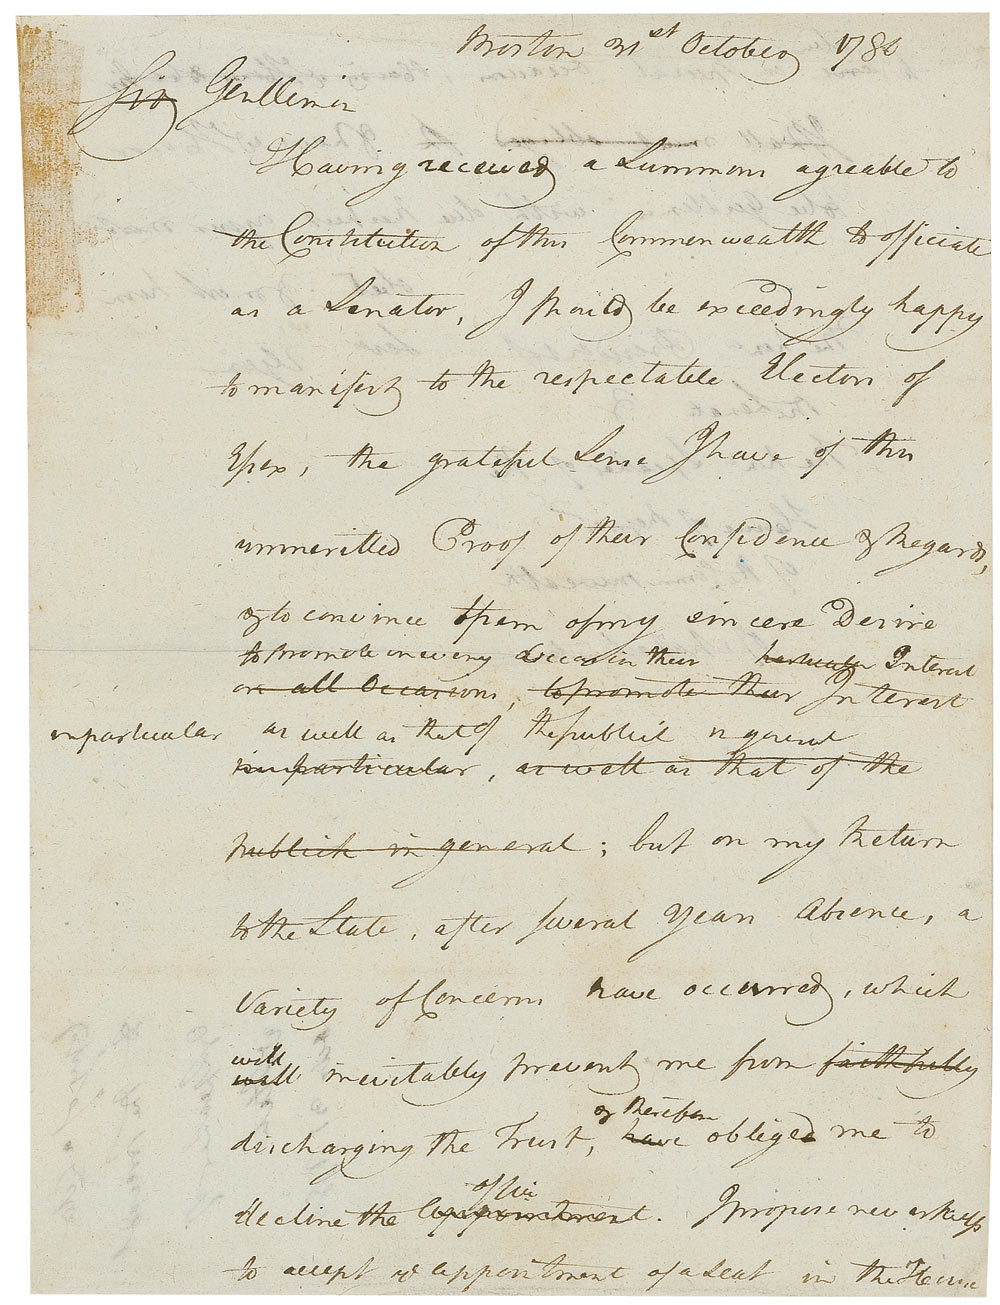 Boston 31st October 1780
Sir Gentlemen
Having received a Summons agreable to
the Constitution of this Commonwealth to officiate
as a Senator, I should be exceedingly happy
to manifest to the respectable Electors of
Essex, the grateful Sense I have of this
unmeritted Proof of their Confidence & Regard,
& to convince them of my sincere Desire
to promote in every Occasion their particular Interest
on all Occasions, to promote their Interest
in particular as well as that of the publick in general
in particular, as well as that of the
publick in general; but on my Return
to the State, after several Years Absence, a
Variety of Concerns have occurred, which
will
will inevitably prevent me from faithfully
& therefore
discharging the Trust, have obliged me to
office
decline the Appointment. I propose nevertheless
to accept Appointment of a Seat in the House